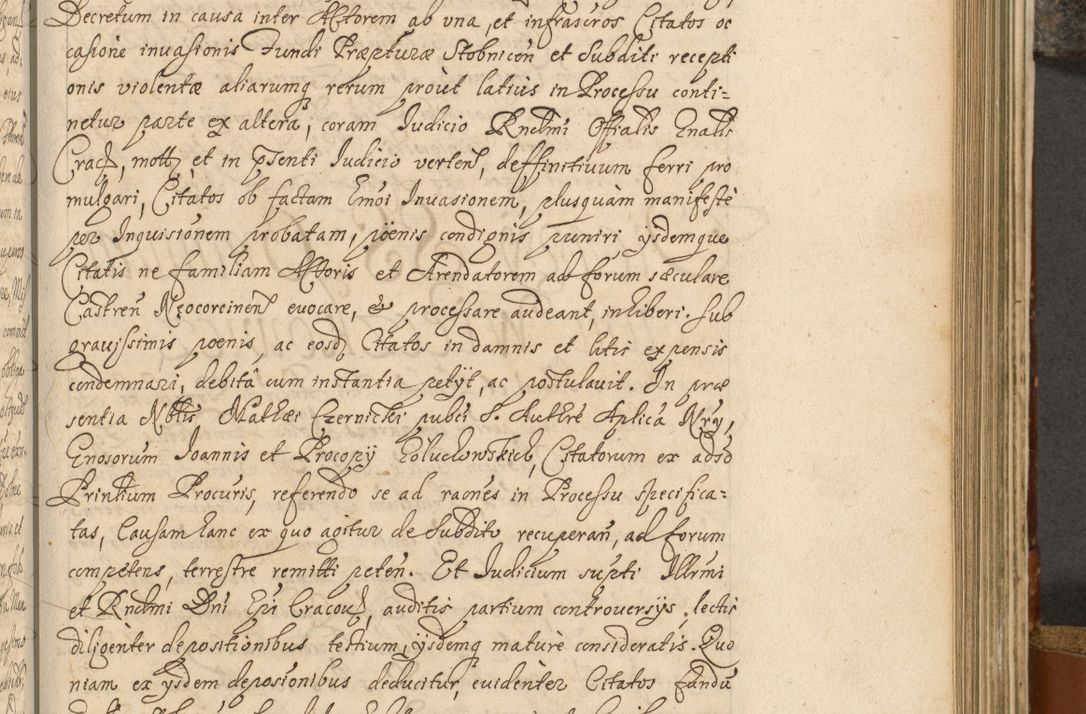 Decretum in causa inter Actorem ab vna, et infrascros Citatos oc
casione inuasionis Fundi Præpturæ Stobnicen et Subditi recepti
onis violentæ aliarumq rerum prout latius in Processu conti=
netur parte ex altera, coram Iudicio Rndmi Offialis Gnalis
Crac, mott, et in psenti Iudicio verten, deffinitiuum ferri pro
mulgari, Citatos ob factam Emoi Inuasionem, plusquàm manifestè
per Inquisionem probatam, pœnis condignis puniri ysdemque
Citatis ne familiam Actoris et Arendatorem ad forum sæculare
Castren Neocorcinen euocare, & processare audeant, inhiberi. sub
grauissimis pœnis, ac eosd Citatos in damnis et litis expensis
condemnari, debitâ cum instantia petyt, ac postulauit. In præ
sentia Nbtis Mathæi Czernicki pubci S. Authre Aplica Nry,
Gnosorum Ioannis et Procopy Zoluchowskich, Citatorum ex adso
Printium Procuris, referendo se ad raones in Processu specifica=
tas, Causam hanc ex quo agitur de Subdito recuperan, ad forum
competens, terrestre remitti peten. Et Iudicium supti Illrmi
et Rndmi Dni Epi Cracou, auditis partium controuersys, lectis
diligenter depositionibus testium, ysdemq maturè consideratis. Quo
niam ex ysdem deposionibus deducitur, euidenter Citatos fundū